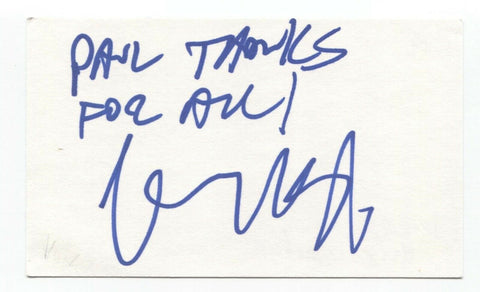 PAUL THANKS
FOR ALL!